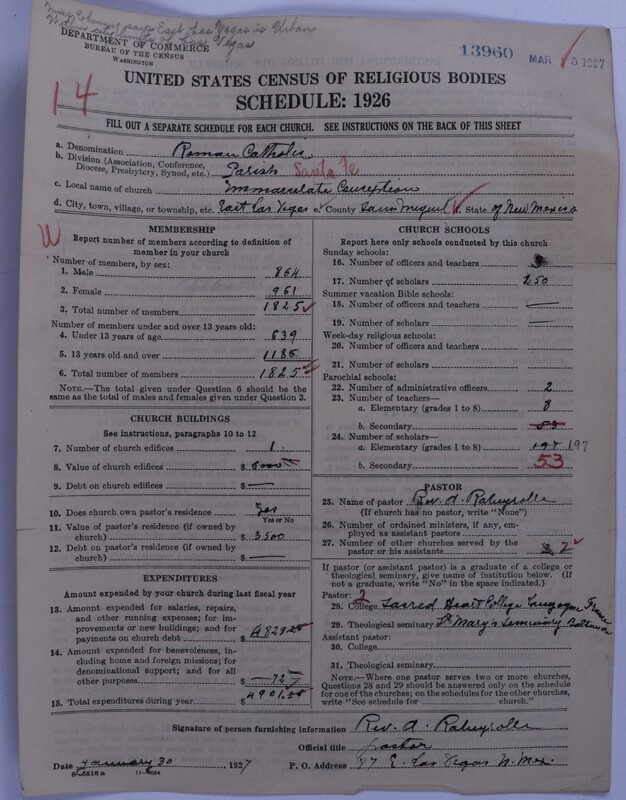 Miss Chenney says East Las Vegas is Urban
Within city limits of Las Vegas
DEPARTMENT OF COMMERCE
BUREAU OF THE CENSUS
WASHINGTON
13960
MAR 5 1927
14
UNITED STATES CENSUS OF RELIGIOUS BODIES
SCHEDULE: 1926
FILL OUT A SEPARATE SCHEDULE FOR EACH CHURCH. SEE INSTRUCTIONS ON THE BACK OF THIS SHEET
a. Denomination Roman Catholic
b. Division (Association, Conference, Diocese, Presbytery, Synod, etc.) Parish Santa Fe
c. Local name of church Immaculate Conception
d. City, town, village, or township, etc. East Las Vegas e. County San Miguel f. State of New Mexico
W
MEMBERSHIP
Report number of members according to definition of
member in your church
Number of members, by sex:
1. Male 864
2. Female 961
3. Total number of members 1825
Number of members under and over 13 years old:
4. Under 13 years of age 639
5. 13 years old and over 1186
6. Total number of members 1825
NOTE.—The total given under Question 6 should be the
same as the total of males and females given under Question 3.
CHURCH BUILDINGS
See instructions, paragraphs 10 to 12
7. Number of church edifices 1
8. Value of church edifices $ 8000
9. Debt on church edifices $ —
10. Does church own pastor's residence Yes
Yes or No
11. Value of pastor's residence (if owned by
church) $ 3500
12. Debt on pastor's residence (if owned by
church) $ —
EXPENDITURES
Amount expended by your church during last fiscal year
13. Amount expended for salaries, repairs,
and other running expenses; for im-
provements or new buildings; and for
payments on church debt $ 4829.25
14. Amount expended for benevolences, in-
cluding home and foreign missions; for
denominational support; and for all
other purposes $ 72
15. Total expenditures during year $ 4901.25
CHURCH SCHOOLS
Report here only schools conducted by this church
Sunday schools:
16. Number of officers and teachers
17. Number of scholars 250
Summer vacation Bible schools:
18. Number of officers and teachers —
19. Number of scholars —
Week-day religious schools:
20. Number of officers and teachers
21. Number of scholars
Parochial schools:
22. Number of administrative officers 2
23. Number of teachers—
a. Elementary (grades 1 to 8) 8
b. Secondary 53
24. Number of scholars—
a. Elementary (grades 1 to 8) 197 197
b. Secondary 53
PASTOR
25. Name of pastor Rev. A. Rabeyrolle
(If church has no pastor, write "None")
26. Number of ordained ministers, if any, em-
ployed as assistant pastors
27. Number of other churches served by the
pastor or his assistants 2
If pastor (or assistant pastor) is a graduate of a college or
theological seminary, give name of institution below. (If
not a graduate, write "No" in the space indicated.)
Pastor: 2
28. College Sacred Heart College France
29. Theological seminary St Mary's Seminary Baltimore
Assistant pastor:
30. College
31. Theological seminary
NOTE.—Where one pastor serves two or more churches,
Questions 28 and 29 should be answered only on the schedule
for one of the churches; on the schedules for the other churches,
write "See schedule for church."
Signature of person furnishing information Rev. A. Rabeyrolle
Official title pastor
Date January 30, 1927 P. O. Address 87 E. Las Vegas N. Mex.
8-5518 a 11-9064